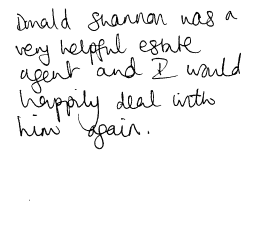 Donald Shannon was a
very helpful estate
agent and I would
happily deal with
him again.